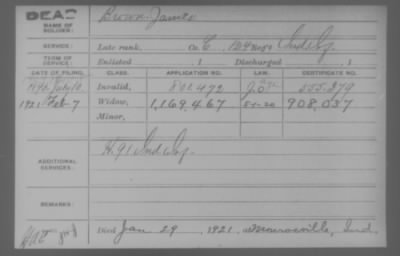 DEAD
NAME OF SOLDIER:
Brown James
SERVICE:
Late rank, Co. E, 124 Reg't Ind Inf
TERM OF SERVICE:
Enlisted , 1 Discharged , 1
DATE OF FILING. CLASS. APPLICATION NO. LAW. CERTIFICATE NO.
July 10 Invalid, 801,472 555,279
1921 Feb 7 Widow, 1,169,467 5-1-20 908,037
Minor,
ADDITIONAL SERVICES:
H. 91 Ind Inf
REMARKS:
Died Jan 29, 1921, at Monroeville, Ind.